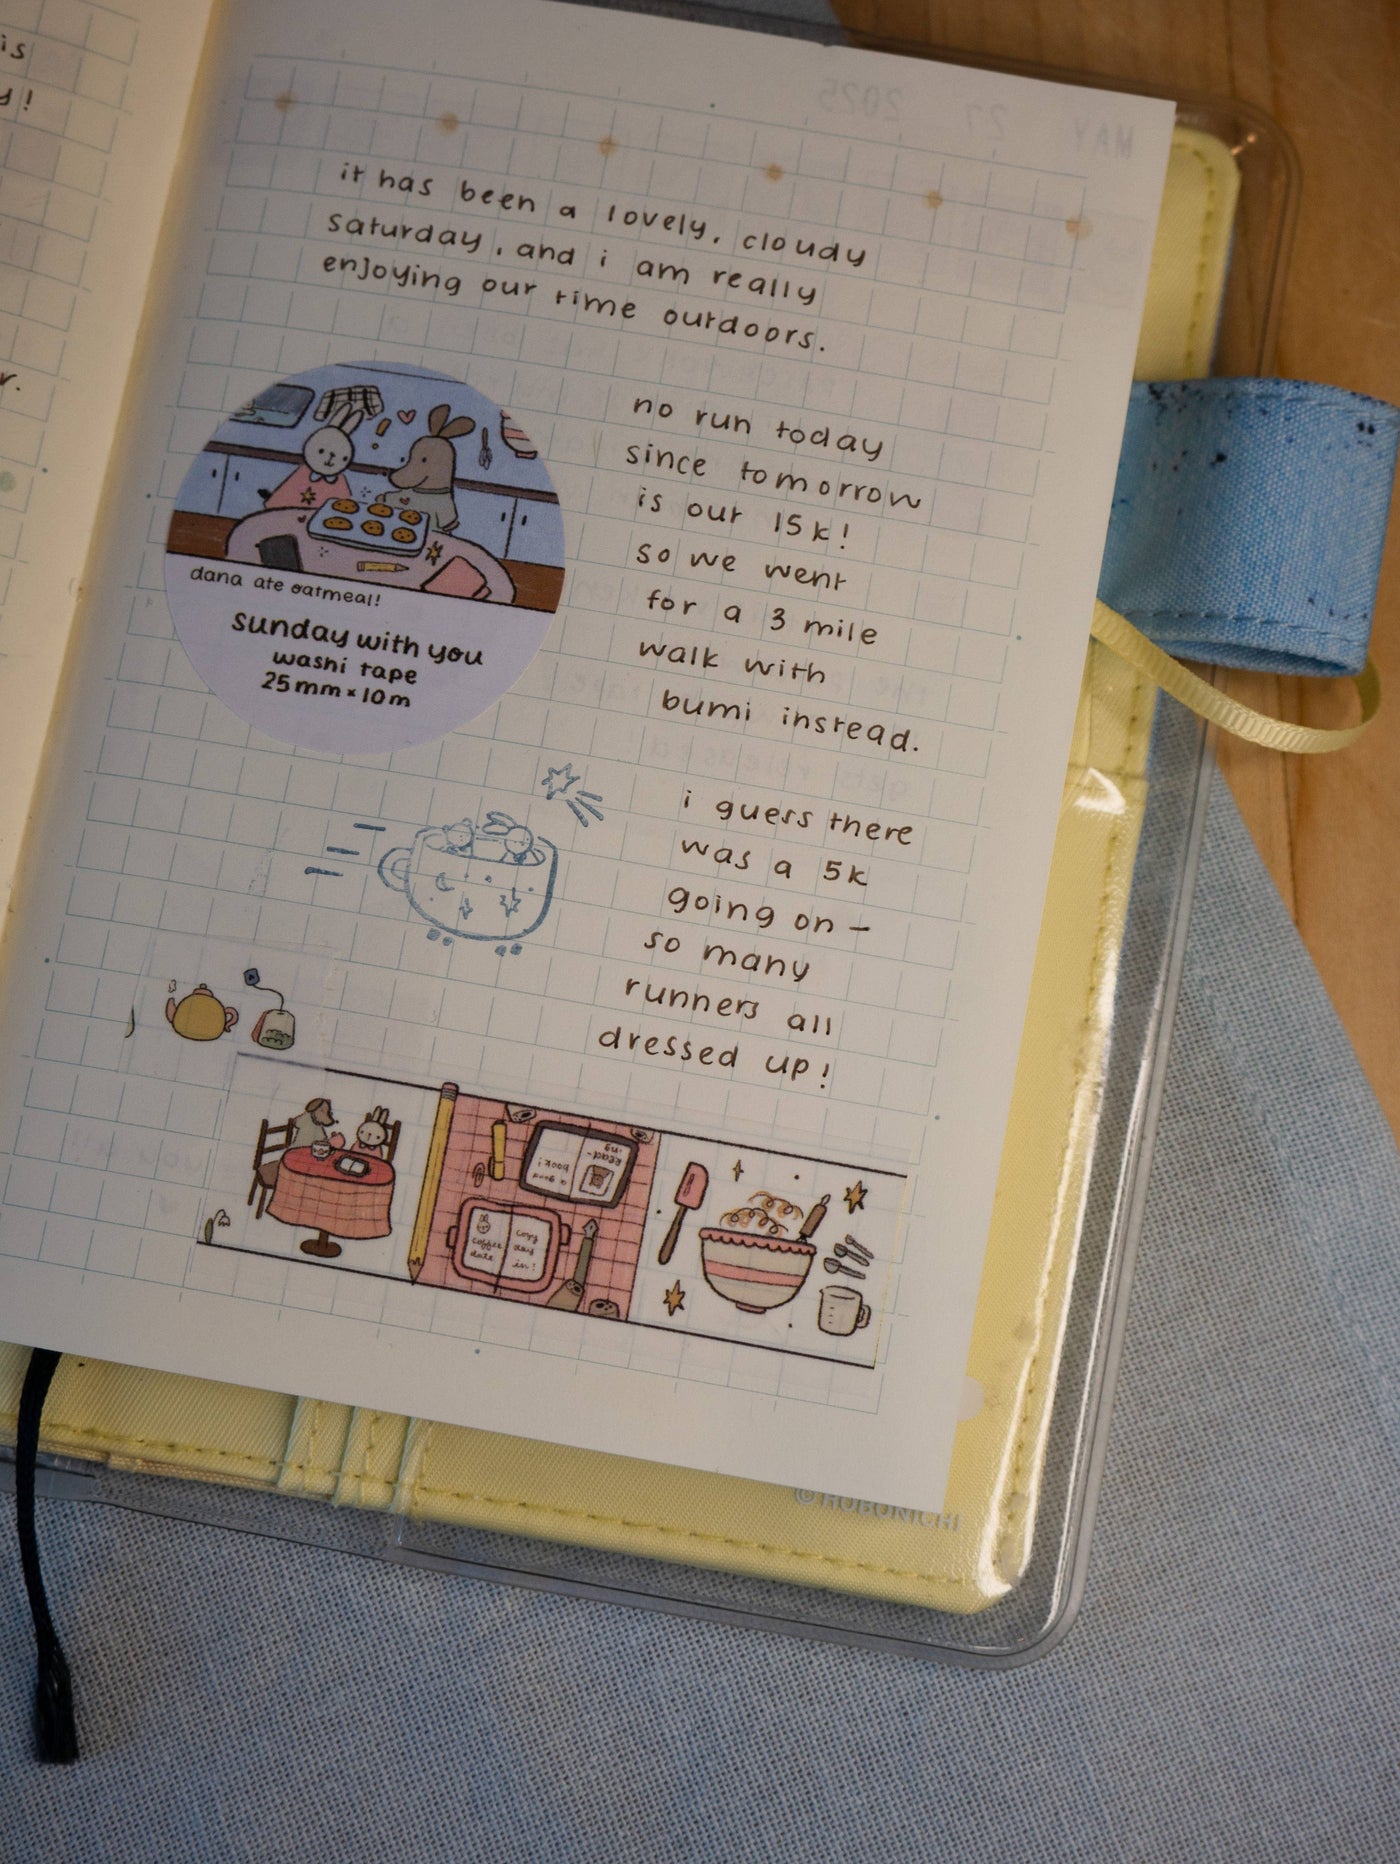 is
y!
r.
MAY 27 2025
it has been a lovely, cloudy
saturday, and i am really
enjoying our time outdoors.
no run today
since tomorrow
is our 15k!
so we went
for a 3 mile
walk with
bumi instead.
dana ate oatmeal!
sunday with you
washi tape
25mm×10m
i guess there
was a 5k
going on –
so many
runners all
dressed up!
a good
book!
Read-
ing
coffee
date
cozy
day
in!
© HOBONICHI